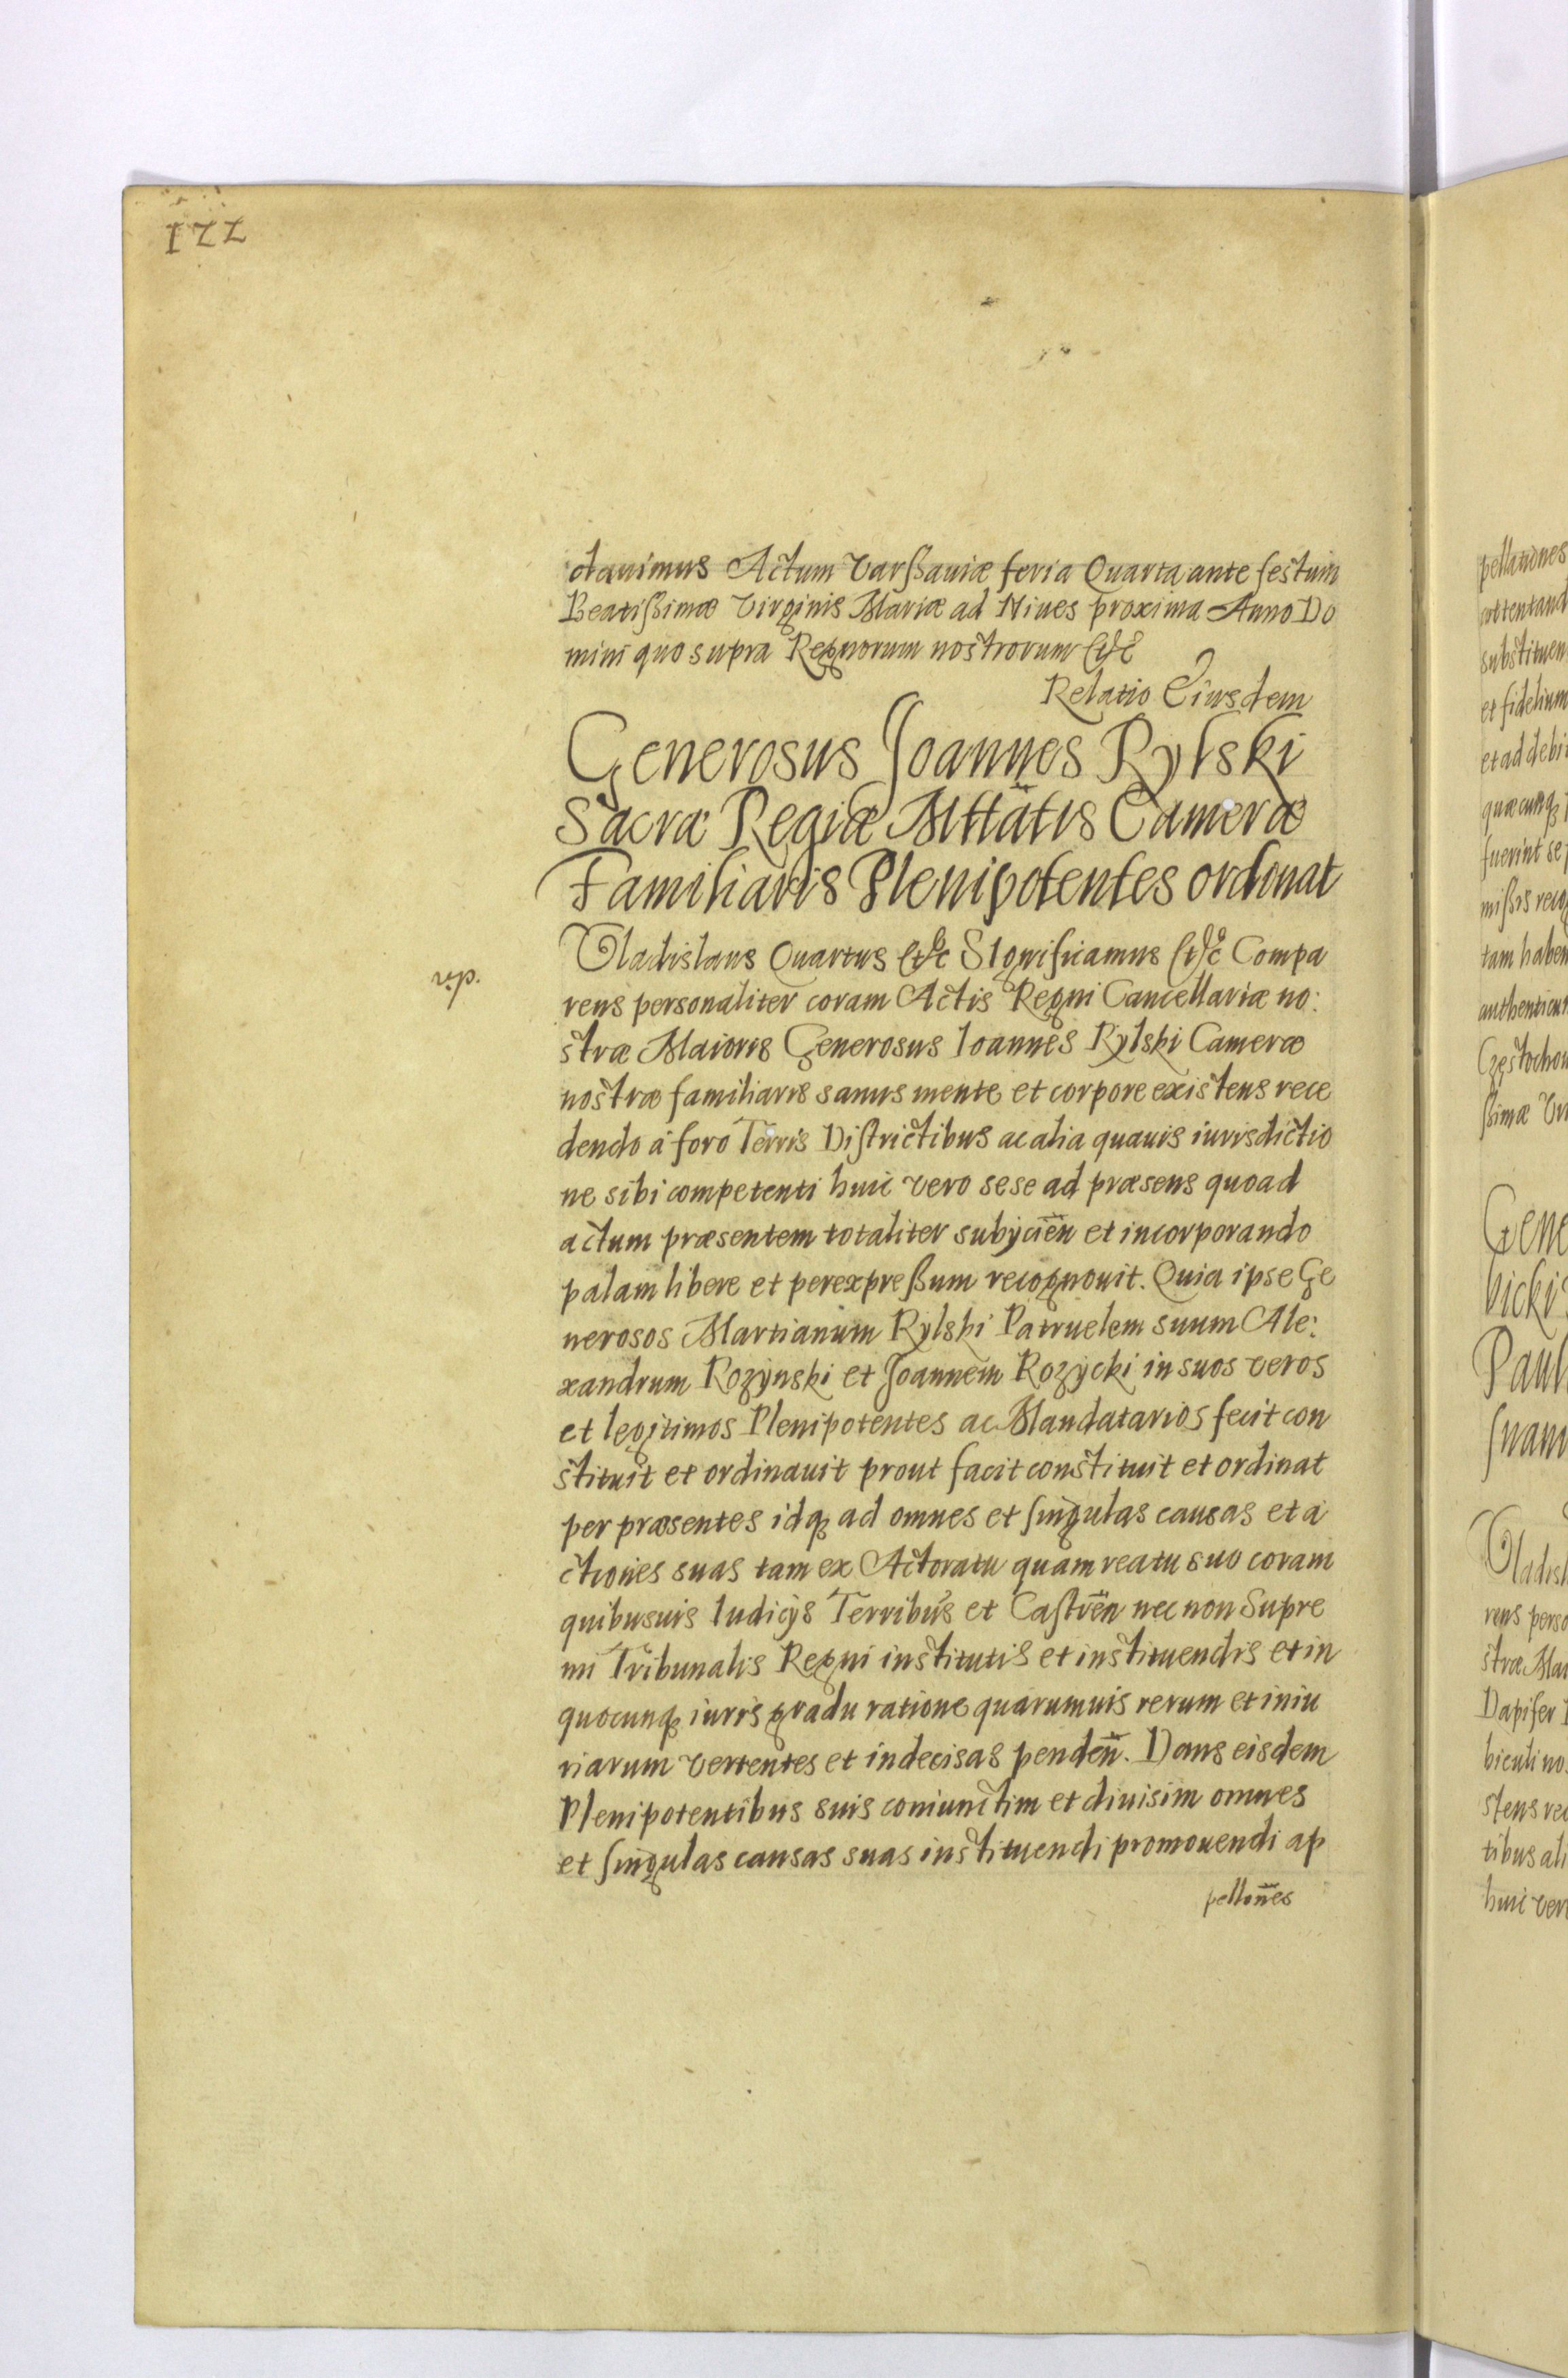 122
davimus Actum Varssaviæ feria Quarta ante festum
Beatissimæ Virginis Mariæ ad Niues proxima Anno Do
mini quo supra Regnorum nostrorum &c
Relatio Eiusdem
Generosus Joannes Rylski
Sacræ Regiæ Mttatis Cameræ
Familiaris Plenipotentes ordinat
Vladislaus Quartus &c Significamus &c Compa
rens personaliter coram Actis Regni Cancellariæ no:
stræ Maioris Generosus Ioannes Rylski Cameræ
nostræ familiaris sanus mente et corpore existens rece
dendo à foro Terris Districtibus ac alia quauis iurisdictio
ne sibi competenti huic vero sese ad præsens quoad
actum præsentem totaliter subijcien̄ et incorporando
palam libere et per expressum recognouit. Quia ipse Ge
nerosos Martianum Rylski Patruelem suum Ale:
xandrum Rozynski et Joannem Rozycki in suos veros
et legitimos Plenipotentes ac Mandatarios fecit con
stituit et ordinauit prout facit constituit et ordinat
per præsentes idq; ad omnes et singulas causas et a
ctiones suas tam ex Actoratu quam reatu suo coram
quibusuis Iudicijs Terribus et Castren̄ nec non Supre
mi Tribunalis Regni institutis et instituendis et in
quocunq; iuris gradu ratione quarumuis rerum et iniu
riarum vertentes et indecisas penden̄. Dans eisdem
Plenipotentibus suis coniunctim et diuisim omnes
et singulas causas suas instituendi promouendi ap
pellon̄es
pellationes
attentand
substituen
et fidelium
et ad debi
quæcunq;
fuerint se
missis reco
tam haben
authentica
Częstochow
ssimæ Vir
Gene
bickis
Paul
suam
Vladisl
rens perso
stræ Mai
Dapifer
biculi no
stens rec
tibus ali
huic ver